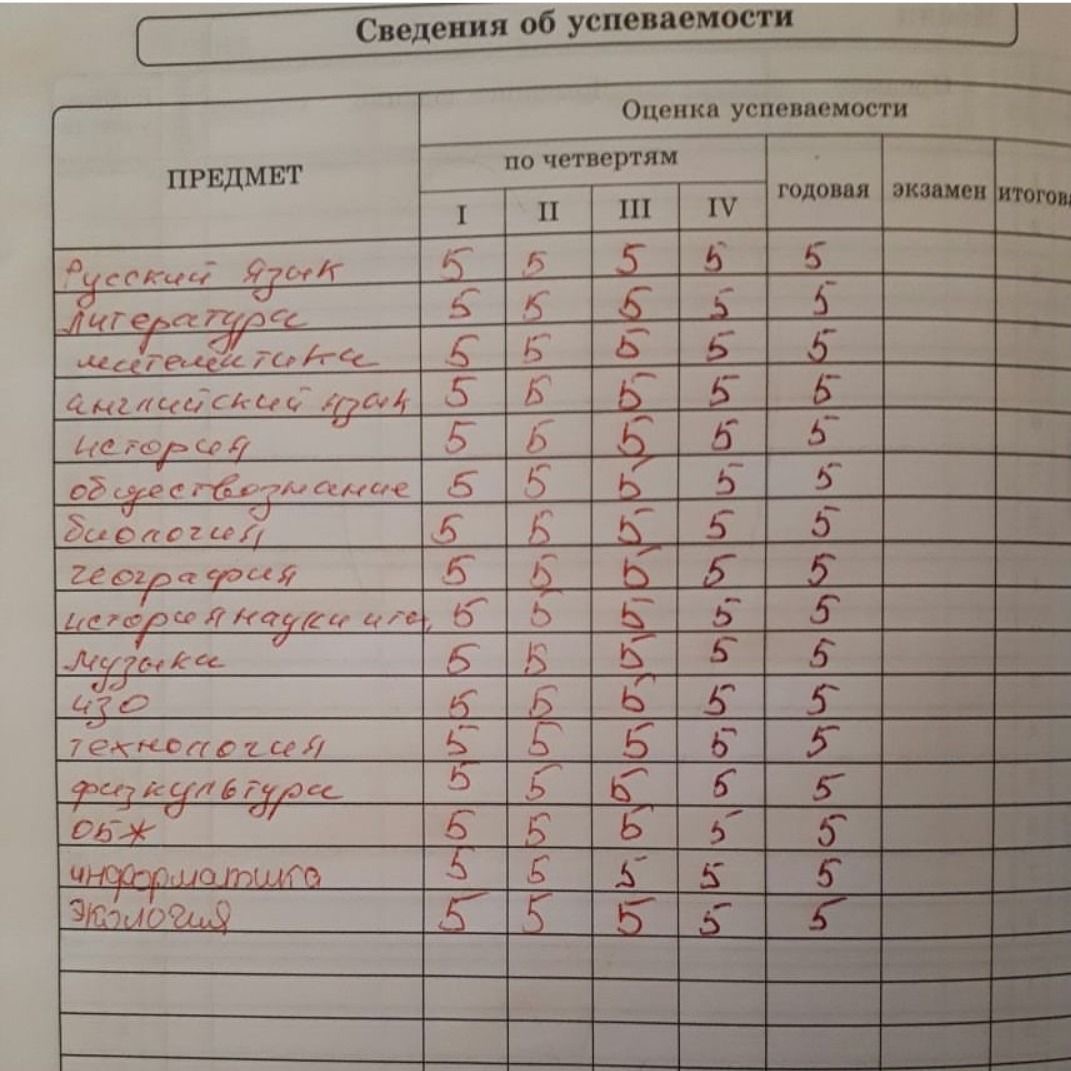 Сведения об успеваемости
ПРЕДМЕТ
Оценка успеваемости
по четвертям
годовая экзамен итогова
I II III IV
Русский язык 5 5 5 5 5
литература 5 5 5 5 5
математика 5 5 5 5 5
английский язык 5 5 5 5 5
история 5 5 5 5 5
обществознание 5 5 5 5 5
биология 5 5 5 5 5
география 5 5 5 5 5
история науки и тех. 5 5 5 5 5
музыка 5 5 5 5 5
ИЗО 5 5 5 5 5
технология 5 5 5 5 5
физкультура 5 5 5 5 5
ОБЖ 5 5 5 5 5
информатика 5 5 5 5 5
Экология 5 5 5 5 5